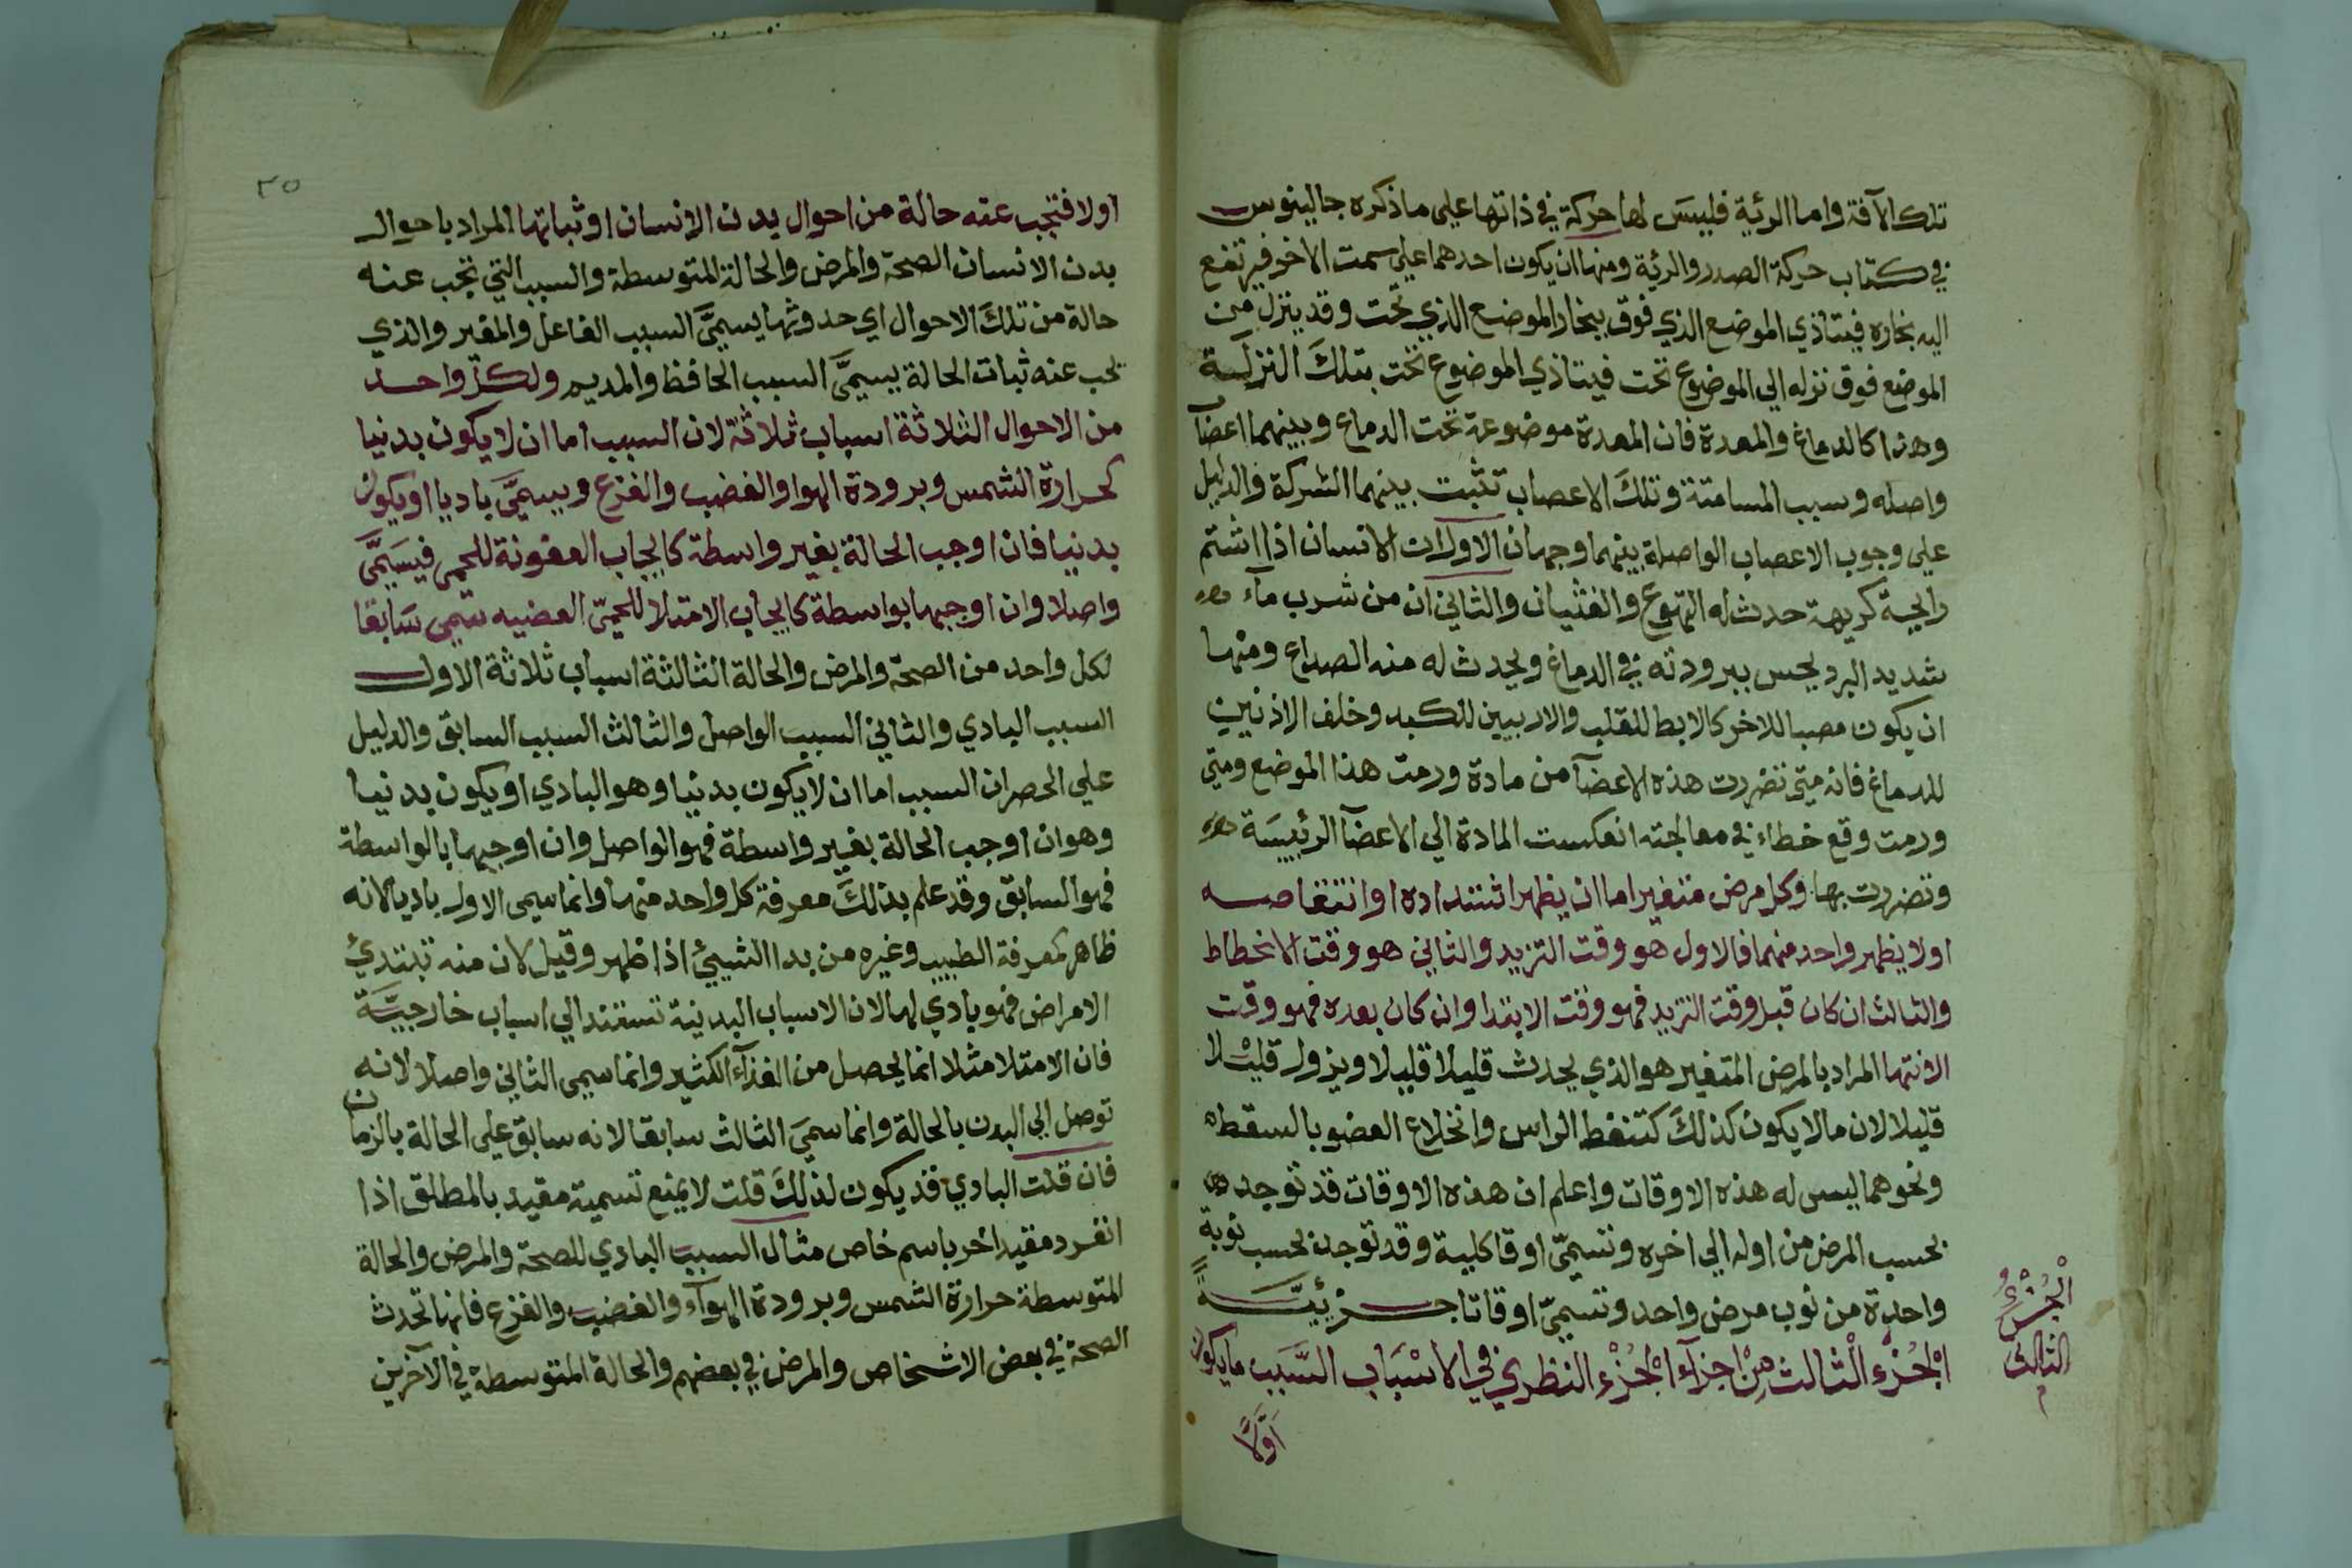 تلك الآفة واما الرئية فليس لها حركة في ذاتها على ما ذكره جالينوس
في كتاب حركة الصدر والرئية ومنها ان يكون احدهما علي سمت الاخر فيرتفع
اليه بخاره فيتاذي الموضع الذي فوق ببخار الموضع الذي تحت وقد ينزل من
الموضع فوق نزله الي الموضوع تحت فيتاذي الموضوع تحت بتلك النزلة
وهذا كالدماغ والمعدة فان المعدة موضوعة تحت الدماغ وبينهما اعضآ
واصله وسبب المسامتة وتلك الاعصاب تثبت بينهما الشركة والدليل
علي وجوب الاعصاب الواصلة بينهما وجهان الاول ان الانسان اذا اشتم
رايحة كريهة حدث له التهوع والغثيان والثاني ان من شرب مآء
شديد البرد يحس ببرودته في الدماغ ويحدث له منه الصداع ومنها
ان يكون مصبا للاخر كالابط للقلب والاربيين للكبد وخلف الاذنين
للدماغ فانه متى تضررت هذه الاعضآ من مادة ورمت هذا الموضع ومتي
ورمت وقع خطاء في معالجته انعكست المادة الي الاعضآ الرئيسة
وتضررت بها وكل مرض متغير اما ان يظهر اشتداده او انتقاصه
اولا يظهر واحد منهما فالاول هو وقت التزيد والثاني هو وقت الانحطاط
والثالث ان كان قبل وقت التزيد فهو وقت الابتدا وان كان بعده فهو وقت
الانتها المراد بالمرض المتغير هو الذي يحدث قليلا قليلا ويزول قليلا
قليلا لان ما لا يكون كذلك كتنفط الراس وانخلاع العضو بالسقطه
ونحوهما ليس له هذه الاوقات واعلم ان هذه الاوقات قد توجد
بحسب المرض من اوله الي اخره وتسمي اوقا كلية وقد توجد بحسب نوبة
واحدة من نوب مرض واحد وتسمي اوقاتا جزئية
الجزء الثالث من اجزآء الجزء النظري في الاسباب السبب ما يكون
اولا
الجزء
الثالث
م
٣٥
اولا فتجب عنه حالة من احوال بدن الانسان او ثباتها المراد باحوال
بدن الانسان الصحة والمرض والحالة المتوسطة والسبب التي تجب عنه
حالة من تلك الاحوال اي حدوثها يسمي السبب الفاعل والمغير والذي
تجب عنه ثبات الحالة يسمي السبب الحافظ والمديم ولكل واحد
من الاحوال الثلاثة اسباب ثلاثة لان السبب اما ان لا يكون بدنيا
كحرارة الشمس وبرودة الهوا والغضب والفزع ويسمي باديا او يكون
بدنيا فان اوجب الحالة بغير واسطة كايجاب العفونة للحمي فيسمي
واصلا وان اوجبها بواسطة كايجاب الامتلا للحمي العفنيه سمي سابقا
لكل واحد من الصحة والمرض والحالة الثالثة اسباب ثلاثة الاول
السبب البادي والثاني السبب الواصل والثالث السبب السابق والدليل
علي الحصر ان السبب اما ان لا يكون بدنيا وهو البادي او يكون بدنيا
وهو ان اوجب الحالة بغير واسطة فهو الواصل وان اوجبها بالواسطة
فهو السابق وقد علم بذلك معرفة كل واحد منها وانما سمي الاول باديا لانه
ظاهر لمعرفة الطبيب وغيره من بدا الشيئ اذا ظهر وقيل لان منه تبتدئ
الامراض فهو بادي لها لان الاسباب البدنية تستند الي اسباب خارجية
فان الامتلا مثلا انما يحصل من الغذآء الكثير وانما سمي الثاني واصلا لانه
توصل الي البدن بالحالة وانما سمي الثالث سابقا لانه سابق علي الحالة بالزمان
فان قلت البادي قد يكون لذلك قلت لا يمنع تسمية مقيد بالمطلق اذا
انفرد مقيد اخر باسم خاص مثال السبب البادي للصحة والمرض والحالة
المتوسطة حرارة الشمس وبرودة الهوآء والغضب والفزع فانها تحدث
الصحة في بعض الاشخاص والمرض في بعضهم والحالة المتوسطة في الآخرين